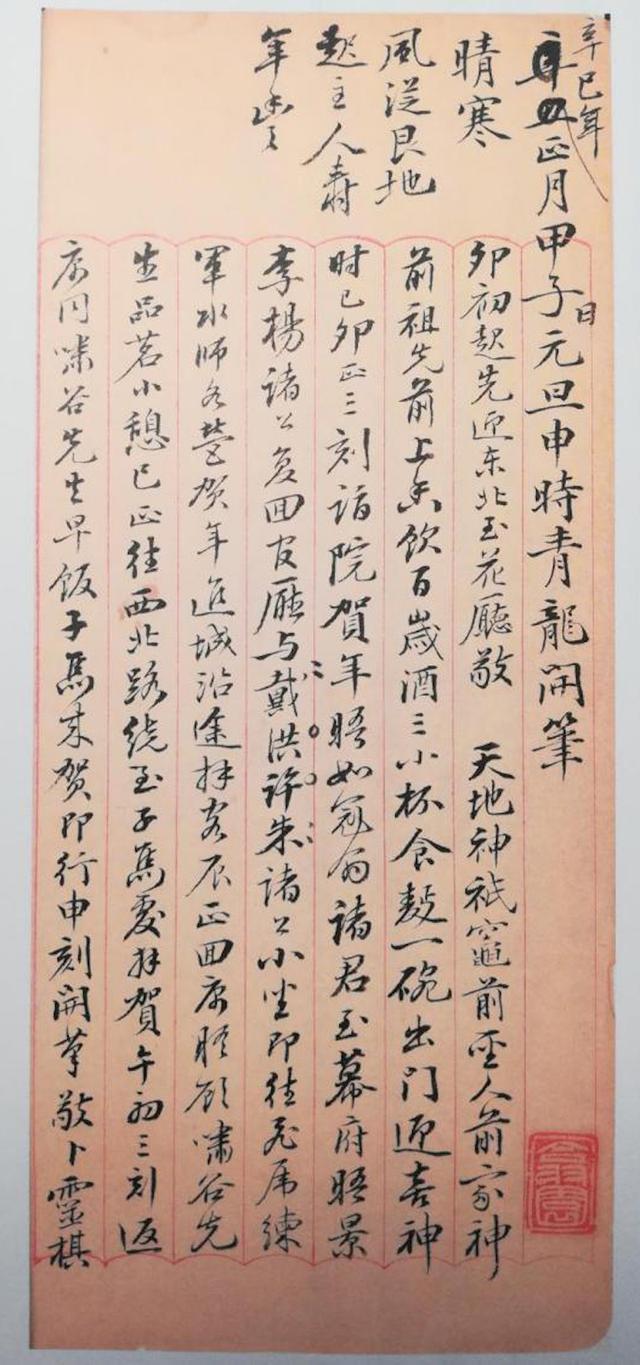 辛巳年
正月甲子日元旦申時青龍開筆
晴寒
風從艮地
起主人壽
年豐
卯初起先迎东北至花廳敬 天地神祇竈前聖人前家神
前祖先前上香飲百歲酒三小杯食麫一碗出門迎喜神
时已卯正三刻詣院賀年晤如冠翁諸君至幕府晤景
李楊諸公复回官廳与戴洪许朱諸公小坐即往虎席練
軍水師各營贺年進城沿途拜客辰正回寓晤顾嘯谷先
生品茗小憩巳正往西北路绕至子馬處拜賀午初三刻返
寓同嘯谷先生早饭子馬来贺即行申刻開筆敬卜靈棋